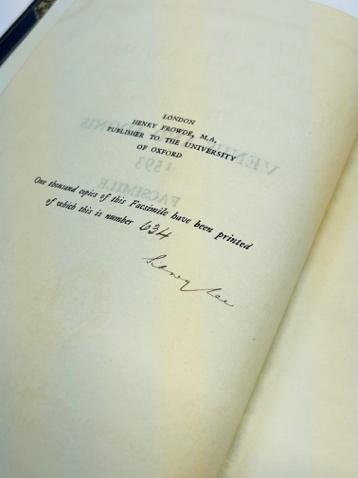 LONDON
HENRY FROWDE, M.A.
PUBLISHER TO THE UNIVERSITY
OF OXFORD
One thousand copies of this Facsimile have been printed
of which this is number 634
VENUS ADONIS
1593
FACSIMILE